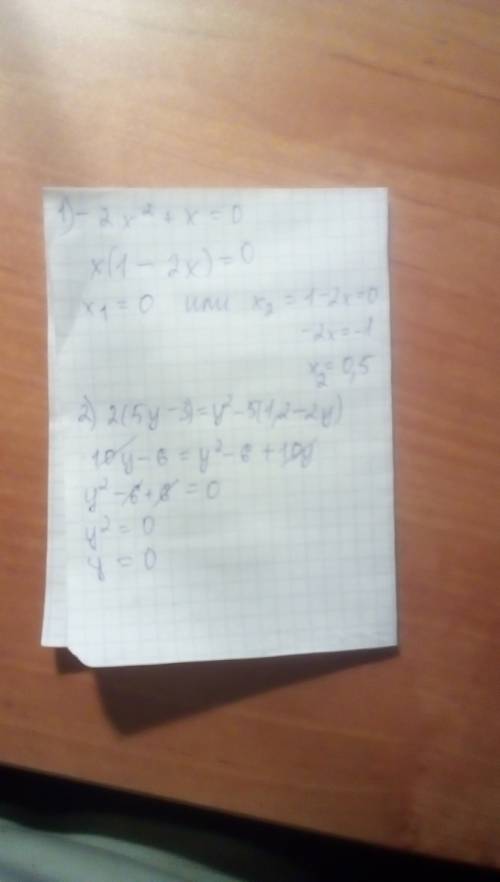 1) - 2x² + x = 0
x(1 - 2x) = 0
x₁ = 0 или x₂ = 1 - 2x = 0
-2x = -1
x₂ = 0,5
2) 2(5y - 3) = y² - 5(1,2 - 2y)
10y - 6 = y² - 6 + 10y
y² - 6 + 6 = 0
y² = 0
y = 0